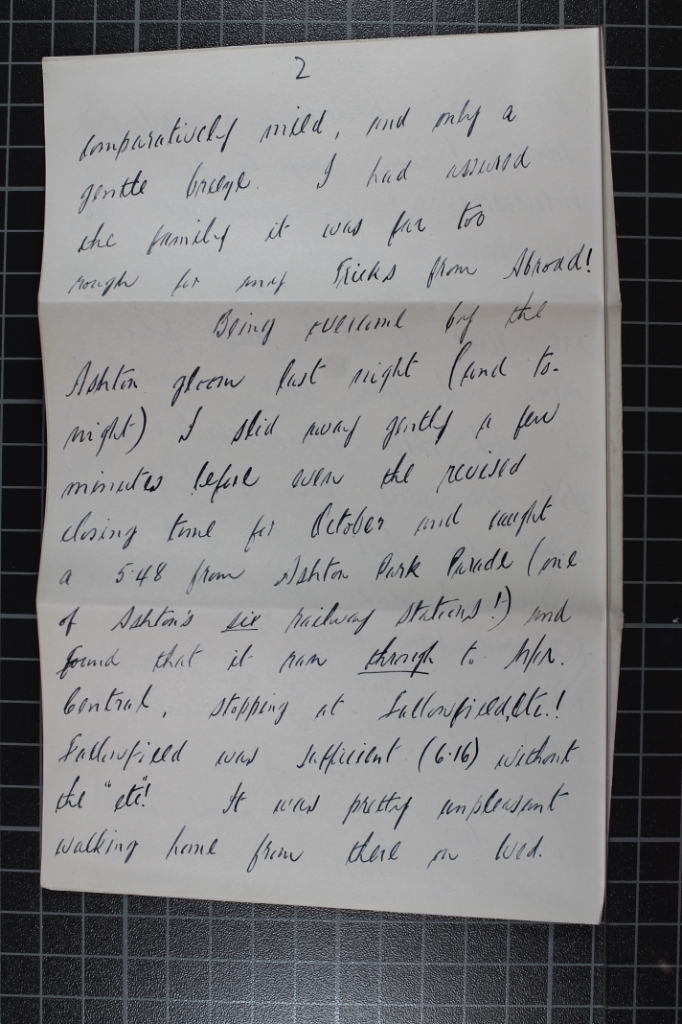 2
comparatively mild, and only a
gentle breeze. I had assured
the family it was far too
rough for any Tricks from Abroad!
Being overcome by the
Ashton gloom last night (and to-
night) I slid away gently a few
minutes before even the revised
closing time for October and caught
a 5.48 from Ashton Park Parade (one
of Ashton's six railway stations!) and
found that it ran through to M/r.
Central, stopping at Fallowfield, etc.!
Fallowfield was sufficient (6.16) without
the "etc"! It was pretty unpleasant
walking home from there on Wed.